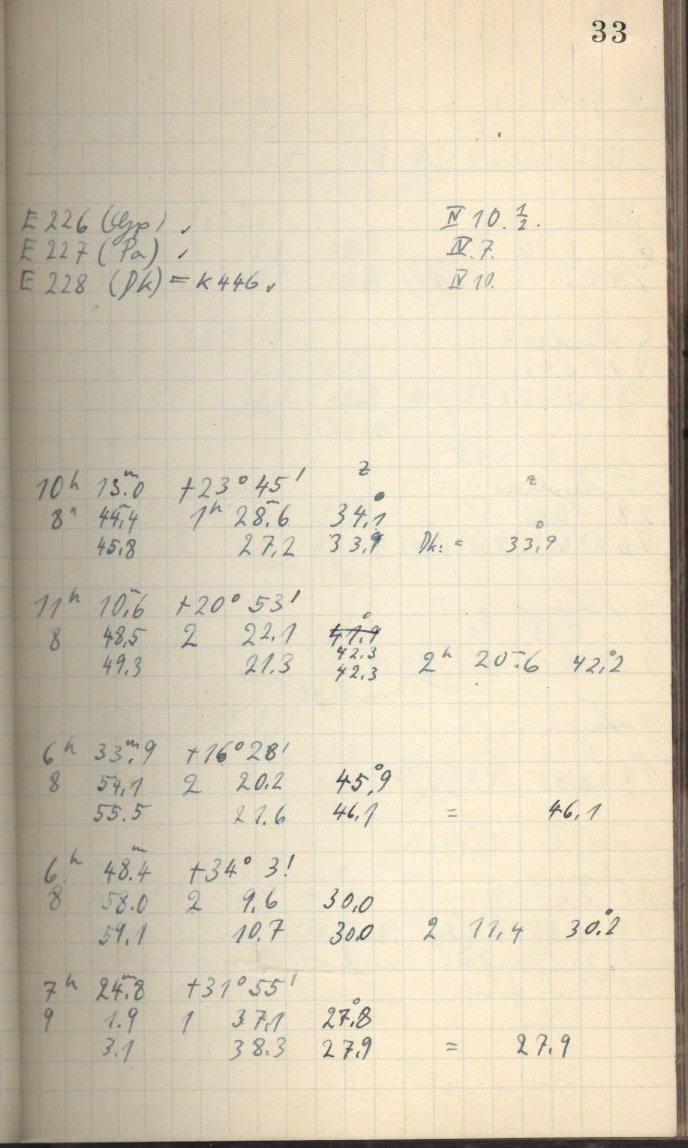 33
E 226 (Gyp) ✓ IV 10. 1/2.
E 227 (Pa) ✓ IV. 7.
E 228 (Dk) = K 446. ✓ IV 10.
10ʰ 13ᵐ.0 +23° 45' z z
8ʰ 44ᵐ.4 1ʰ 28ᵐ.6 34°.1
45.8 27.2 33.9 Dk: = 33°.9
11ʰ 10ᵐ.6 +20° 53'
8 48.5 2 22.1
42.3
49.3 21.3 42.3 2ʰ 20ᵐ.6 42°.2
6ʰ 33ᵐ.9 +16° 28'
8 54.1 2 20.2 45°.9
55.5 21.6 46.1 = 46.1
6ʰ 48ᵐ.4 +34° 3'
8 58.0 2 9.6 30.0
59.1 10.7 30.0 2 11.4 30°.2
7ʰ 24ᵐ.8 +31° 55'
9 1.9 1 37.1 27°.8
3.1 38.3 27.9 = 27.9